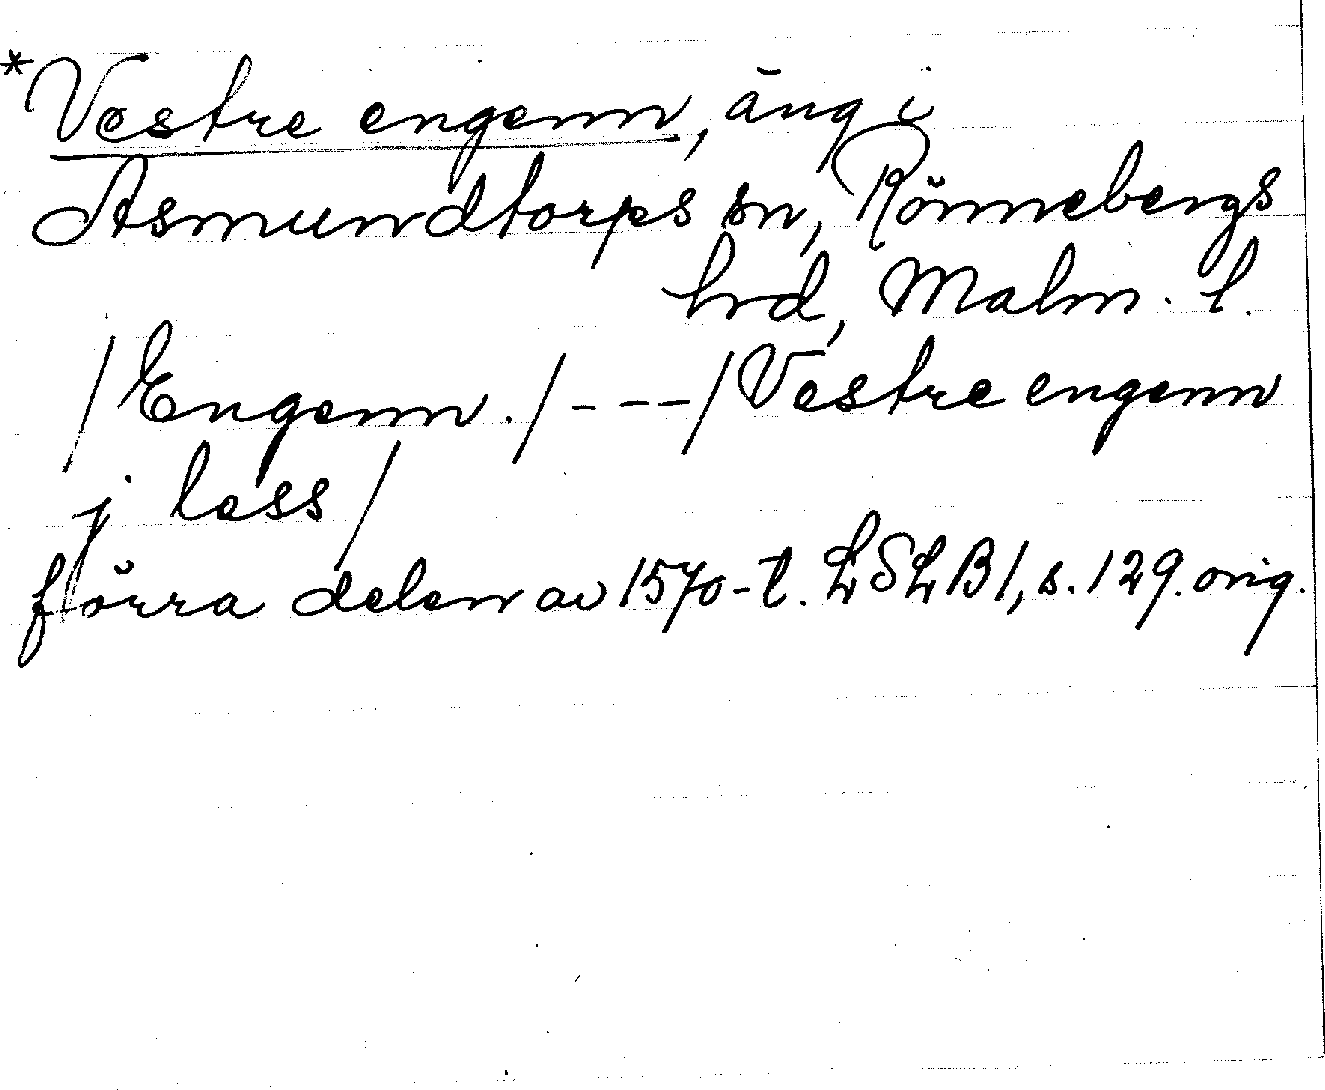 *Vestre engenn, äng i
Asmundtorps sn, Rönnebergs
hrd, Malm. l.
/Engenn./---/Vestre engenn
j less/
förra delen av 1570-t. LSLB1, s. 129. orig.